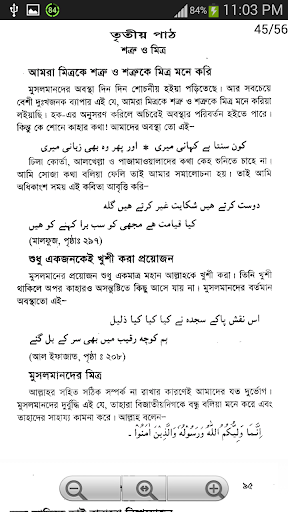 84%
11:03 PM
45/56
তৃতীয় পাঠ
শত্রু ও মিত্র
আমরা মিত্রকে শত্রু ও শত্রুকে মিত্র মনে করি
মুসলমানদের অবস্থা দিন দিন শোচনীয় হইয়া পড়িতেছে। আর সবচেয়ে
বেশী দুঃখজনক ব্যাপার এই যে, আমরা মিত্রকে শত্রু ও শত্রুকে মিত্র মনে করিয়া
লইয়াছি। হক-এর অনুসরণ করিলে অচিরেই অবস্থার পরিবর্তন হইতে পারে।
কিন্তু কে শোনে কাহার কথা! আমাদের অবস্থা তো এই–
کون سنتا ہے کہانی میری * اور پھر وہ بھی زبانی میری
ঢিলা কোর্তা, আলখেল্লা ও পাজামাওয়ালাদের কথা কেহ শুনিতে চাহে না।
আমি সোজা কথা বলিয়া ফেলি তাই আমার সমালোচনা হয়। তাই আমি
অধিকাংশ সময় এই কবিতা আবৃত্তি করি–
دوست کرتے ہیں شکایت غیر کرتے ہیں گلہ
کیا قیامت ہے مجھی کو سب برا کہنے کو ہیں
(মালফুজ, পৃষ্ঠাঃ ২৯৭)
শুধু একজনকেই খুশী করা প্রয়োজন
মুসলমানের প্রয়োজন শুধু একমাত্র মহান আল্লাহকে খুশী করা। তিনি খুশী
থাকিলে অপর কাহারও অসন্তুষ্টিতে কিছু আসে যায় না। মুসলমানদের বর্তমান
অবস্থাতো এই–
اس نقش پا کے سجدہ نے کیا کیا کیا ذلیل
ہم کوچہ رقیب میں بھی سر کے بل گئے
(আল ইফাজাত, পৃষ্ঠা ঃ ২০৮)
মুসলমানদের মিত্র
আল্লাহর সহিত সঠিক সম্পর্ক না রাখার কারণেই আমাদের যত দুর্ভোগ।
মুসলমানদের দুর্বুদ্ধি এই যে, তাহারা বিজাতীয়দিগকে বন্ধু বলিয়া মনে করে এবং
তাহাদের সাহায্য কামনা করে। আল্লাহ বলেন–
اِنَّمَا وَلِيُّكُمُ اللّٰهُ وَرَسُوْلُهٗ وَالَّذِيْنَ اٰمَنُوْا ۔
৯৫